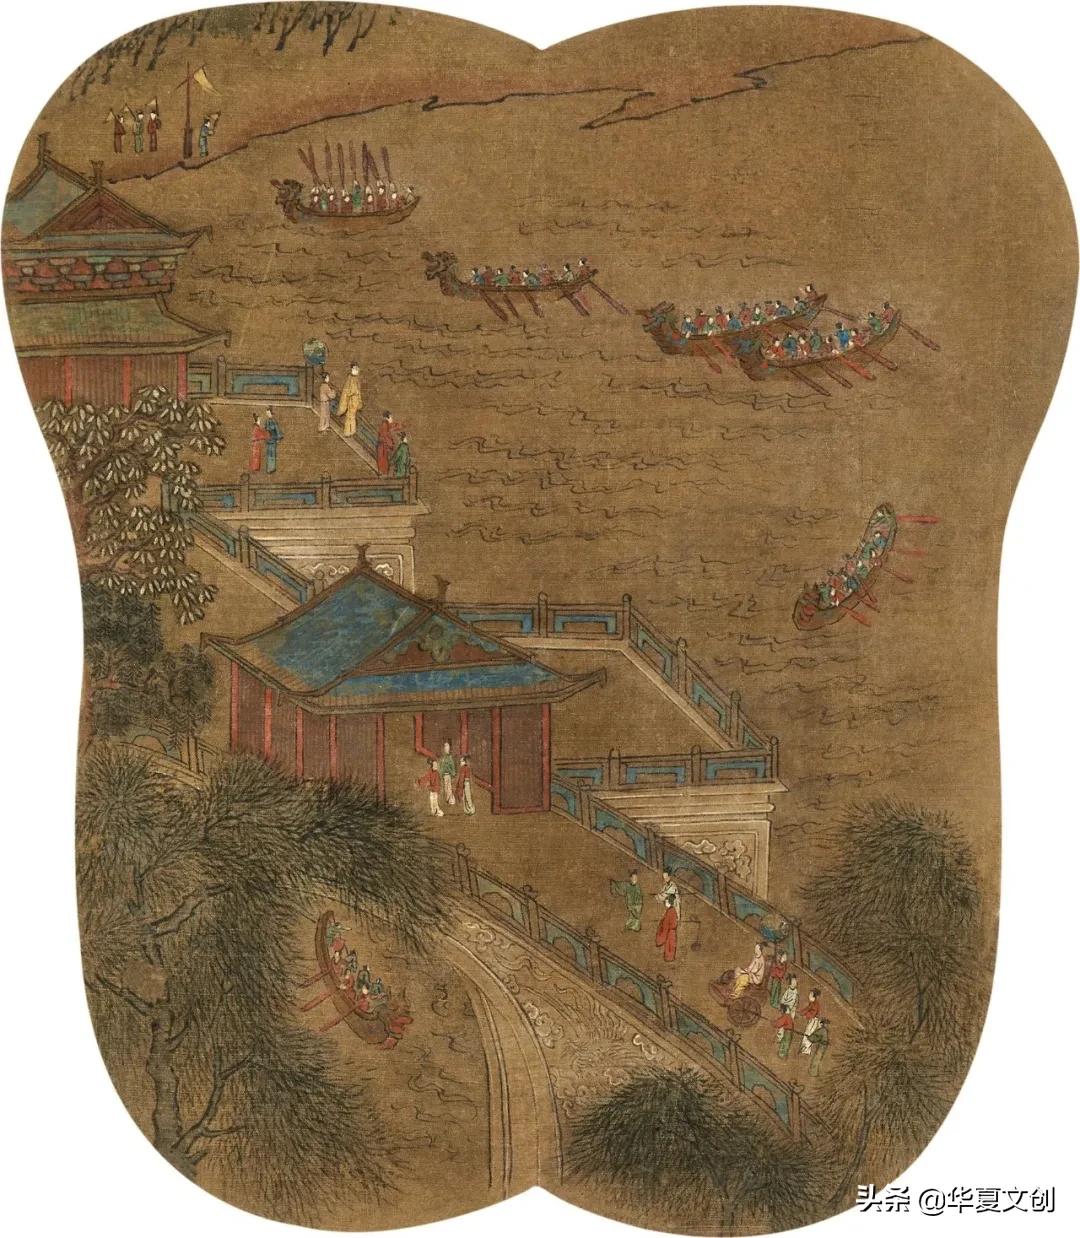 头条 @华夏文创